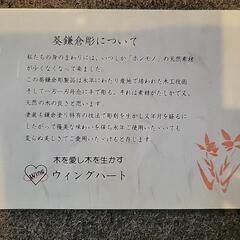 葵鎌倉彫について
私たちの身のまわりには、いつしか「ホンモノ」の天然素材
が少くなくなって来ました。
この葵鎌倉彫製品は永年にわたり産地で培われた木工技術
そして一刀一刀丹念に手で彫る。それは素材がたしかで又、
天然の木の良さと思います。
塗装も鎌倉塗り特有の技法で彫刻を生かし又年月を経るに
したがって優美な味わいを保ち末永ご使用いたゞいても
変らぬ美しさでご愛用いたゞけると存じます。
木を愛し木を生かす
Wing ウィングハート